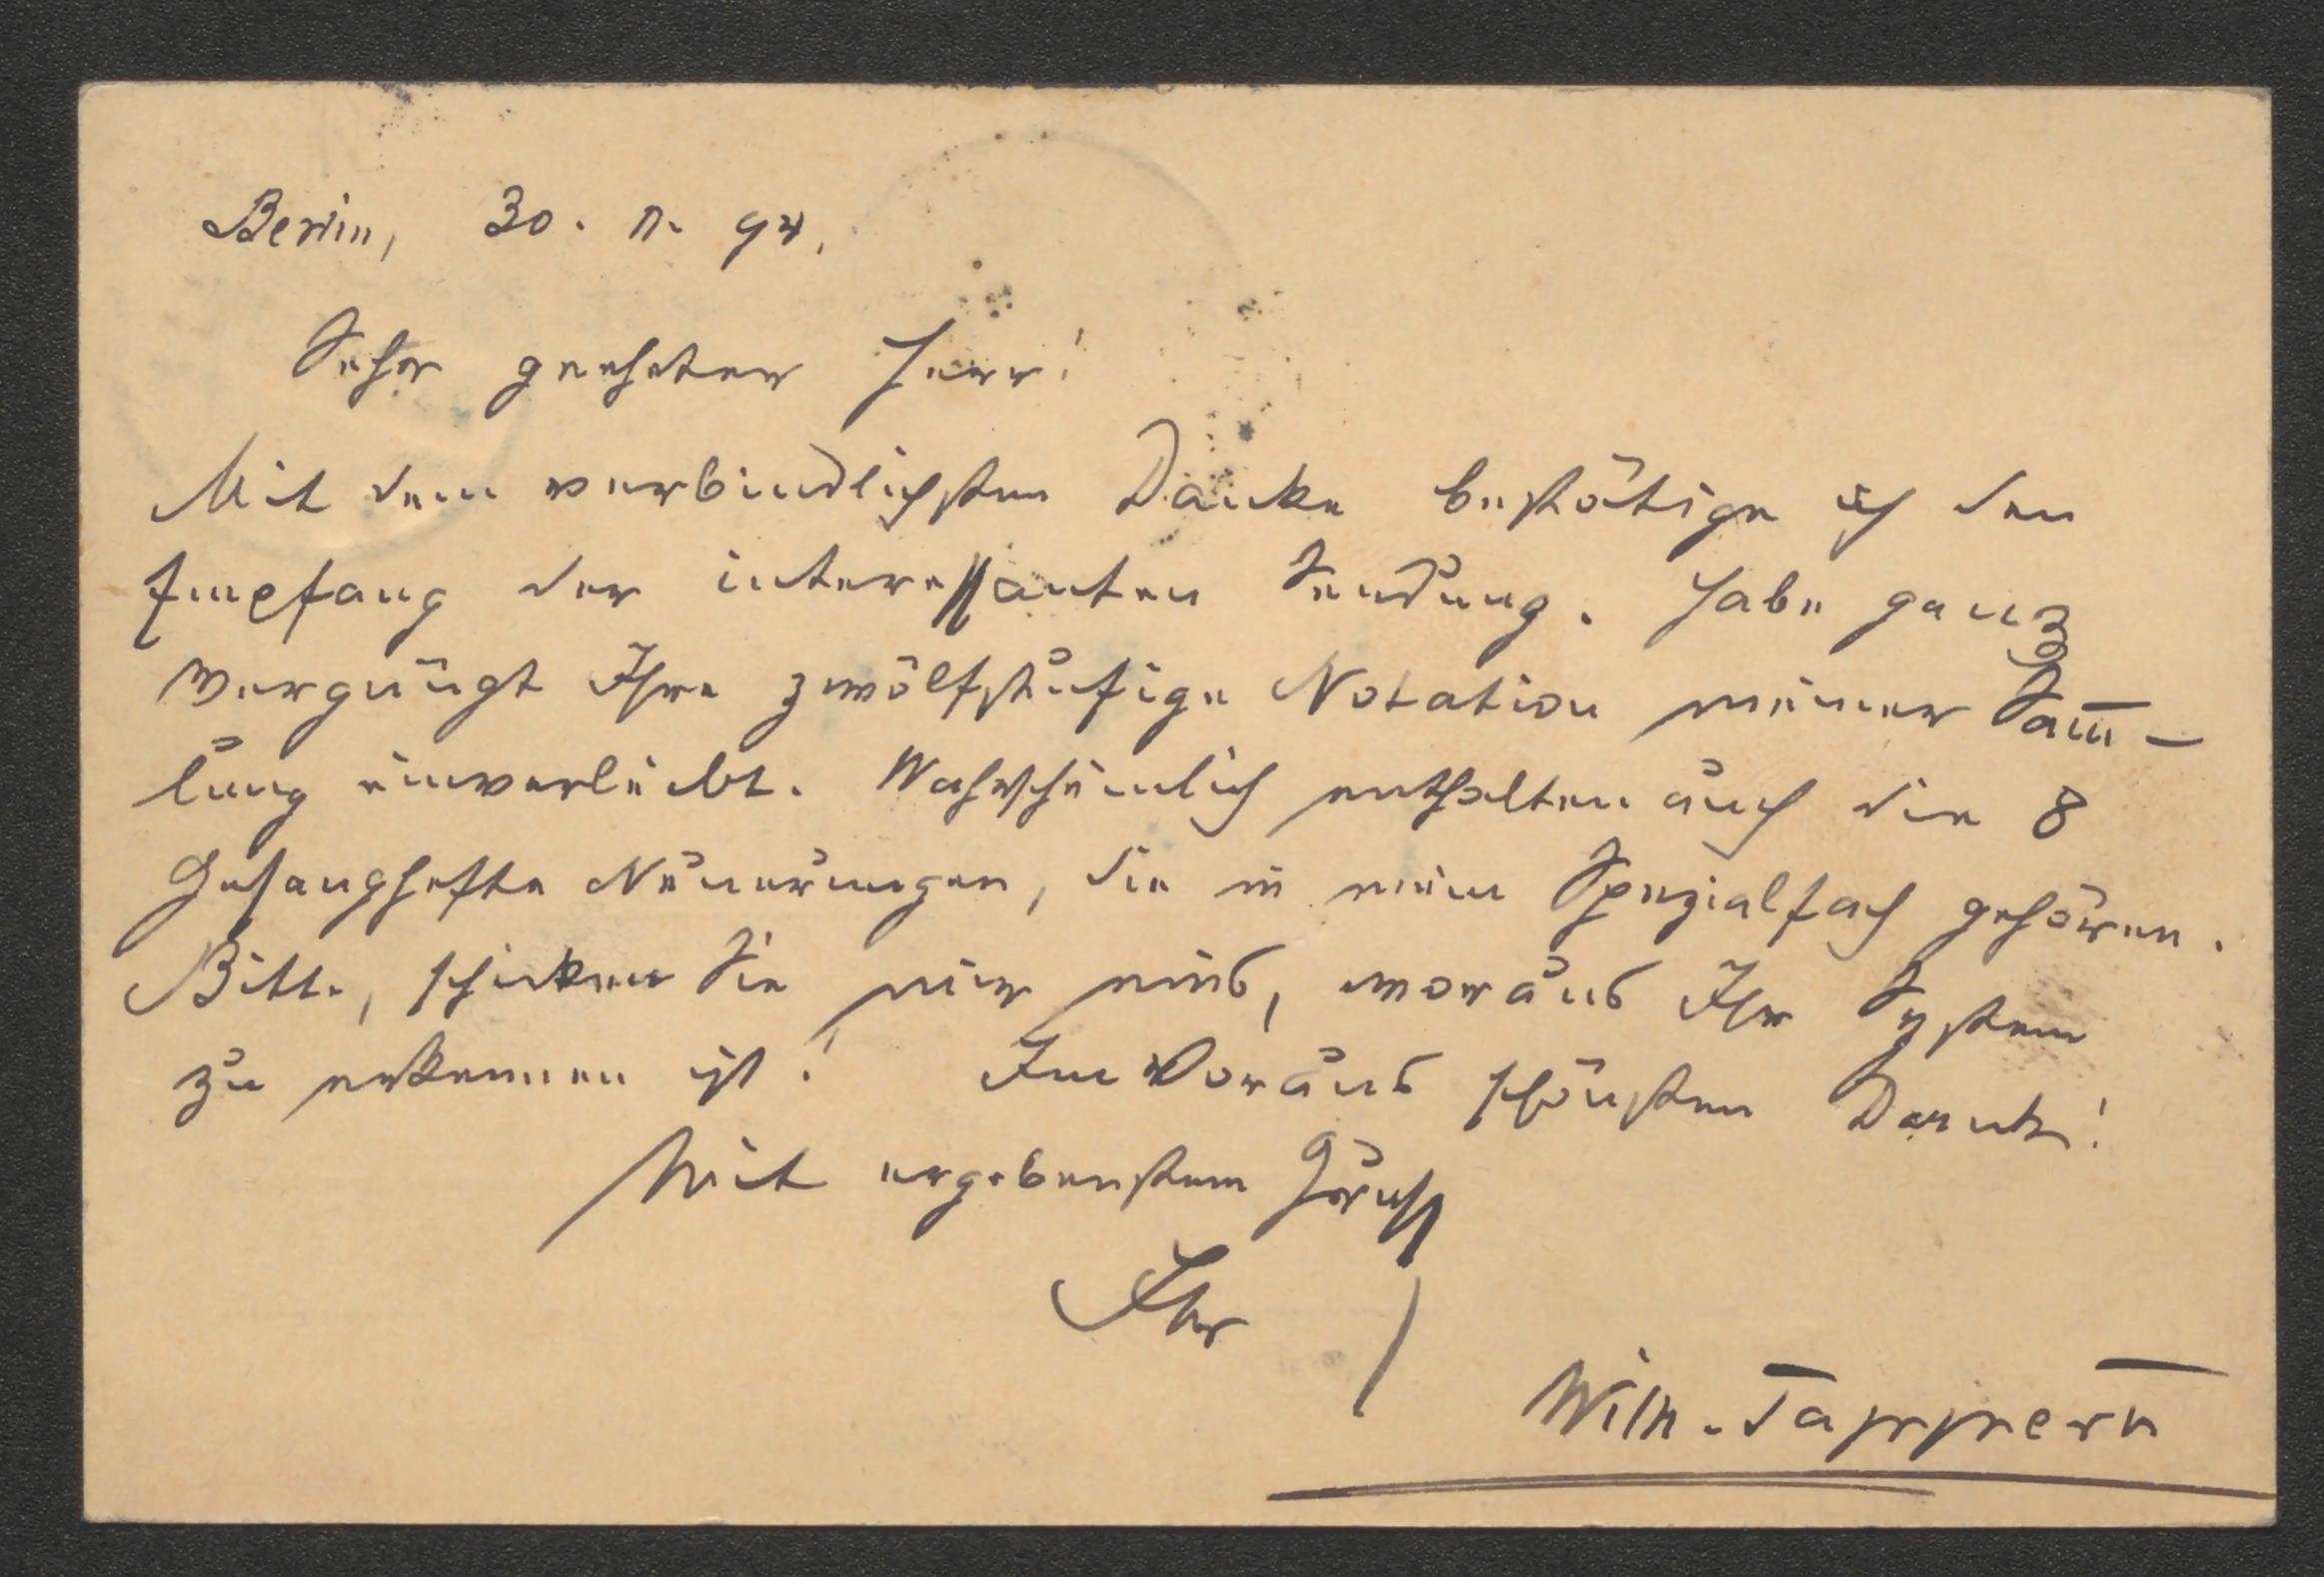 Berlin, 30. 11. 94.
Sehr geehrter Herr!
Mit dem verbindlichsten Danke bestätige ich den
Empfang der interessanten Sendung. Habe ganz
vergnügt Ihre zwölfstufige Notation meiner Sam̅-
lung einverleibt. Wahrscheinlich enthalten auch die 8
Gesanghefte Neuerungen, die in mein Spezialfach gehören.
Bitte, schicken Sie mir eins, woraus Ihr System
zu erkennen ist! Im Voraus schönsten Dank!
Mit ergebenstem Gruß
Ihr
Wilh. Tappert